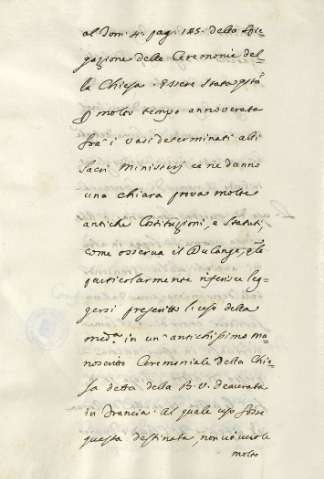 al Dom. 4. pag. 185. della Spie=
gazione delle Ceremonie del=
la Chiesa. Essere stata qstã
molto tempo annoverata
frà i vasi determinati alli
Sacri Ministerj ce ne danno
una chiara prova molte
antiche Costituzioni, e Statuti,
come osserva il Du Cange,
particolarmente riferisce leg=
gersi prescritto l'uso della
med.ª in un' antichissimo ma=
noscritto Ceremoniale della Chie=
sa detta della B. V. deaurata
in Francia. Al quale uso fosse
questa destinata, non vi vuole
molto